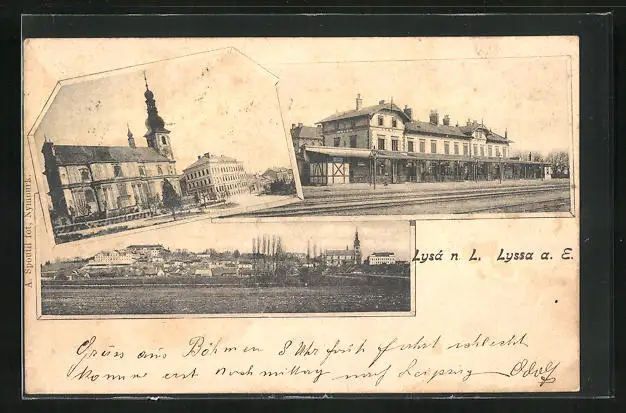 A. Spoutil fot., Nymburk.
Lysá n L. Lyssa a. E.
Gruss aus Böhmen 8 Uhr früh fahrt schlecht
komme erst Nachmittag nach Leipzig Adolf